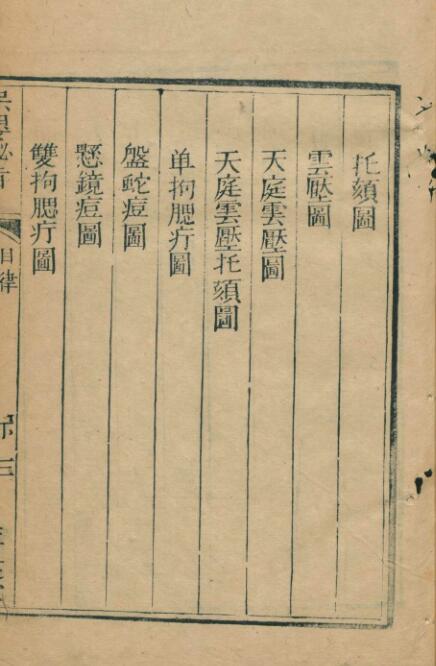 托頦圖
雲壓圖
天庭雲壓圖
天庭雲壓托頦圖
单拘腮疔圖
盤蛇痘圖
懸鏡痘圖
雙拘腮疔圖